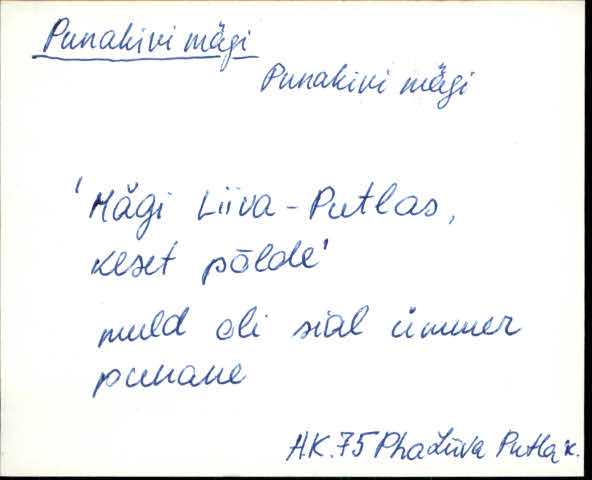 Punakivi mägi
Punakivi mägi
'Mägi Liiva-Putlas,
keset põldè'
muld oli sial ümmer
punane
AK.75 Pha Liiva Putla k.